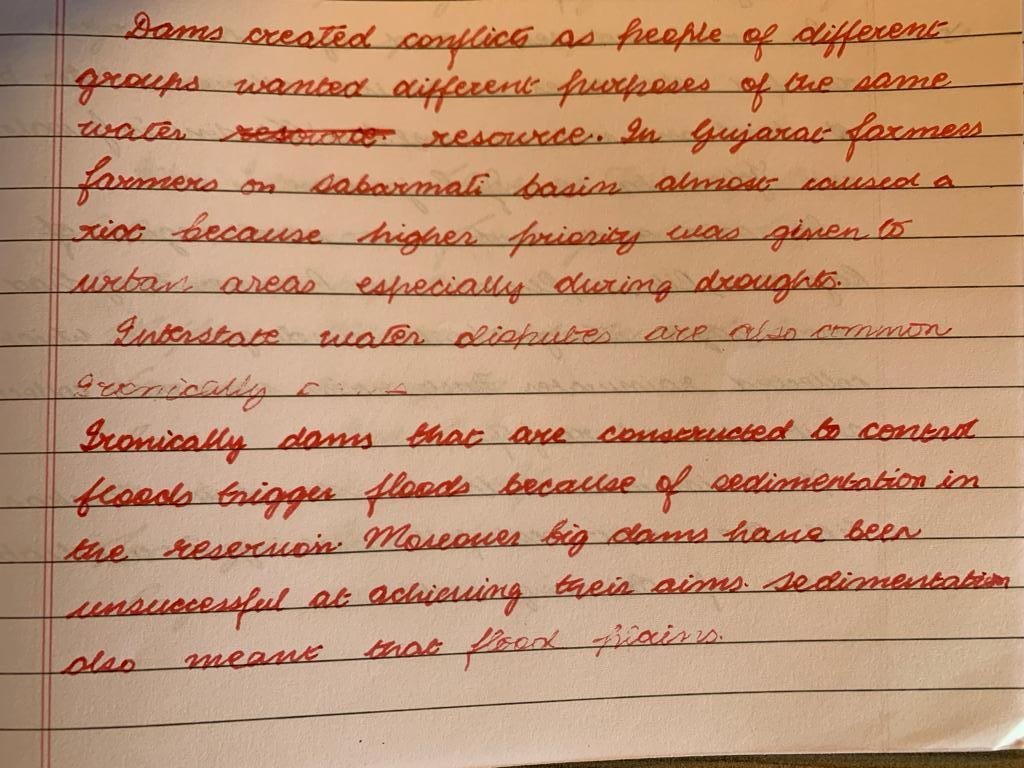 Dams created conflicts as people of different
groups wanted different purposes of the same
water resource resource. In Gujarat farmers
farmers on sabarmati basin almost caused a
riot because higher priority was given to
urban areas especially during droughts.
Interstate water disputes are also common
Ironically
Ironically dams that are constructed to control
floods trigger floods because of sedimentation in
the reservoir. Moreover big dams have been
unsuccessful at achieving their aims. sedimentation
also meant that flood plains.